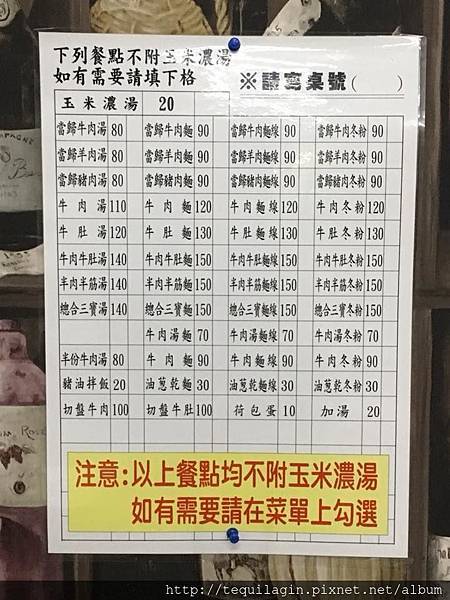 下列餐點不附玉米濃湯
如有需要請填下格
※請寫桌號( )
玉米濃湯 20
當歸牛肉湯 80 當歸牛肉麵 90 當歸牛肉麵線 90 當歸牛肉冬粉 90
當歸羊肉湯 80 當歸羊肉麵 90 當歸羊肉麵線 90 當歸羊肉冬粉 90
當歸豬肉湯 80 當歸豬肉麵 90 當歸豬肉麵線 90 當歸豬肉冬粉 90
牛肉湯 110 牛肉麵 120 牛肉麵線 120 牛肉冬粉 120
牛肚湯 120 牛肚麵 130 牛肚麵線 130 牛肚冬粉 130
牛肉牛肚湯 140 牛肉牛肚麵 150 牛肉牛肚麵線 150 牛肉牛肚冬粉 150
半肉半筋湯 140 半肉半筋麵 150 半肉半筋麵線 150 半肉半筋冬粉 150
總合三寶湯 140 總合三寶麵 150 總合三寶麵線 150 總合三寶冬粉 150
牛肉湯麵 70 牛肉湯麵線 70 牛肉湯冬粉 70
半份牛肉湯 80 牛肉麵 90 牛肉麵線 90 牛肉冬粉 90
豬油拌飯 20 油蔥乾麵 30 油蔥乾麵線 30 油蔥乾冬粉 30
切盤牛肉 100 切盤牛肚 100 荷包蛋 10 加湯 20
注意:以上餐點均不附玉米濃湯
如有需要請在菜單上勾選
http://tequilagin.pixnet.net/album